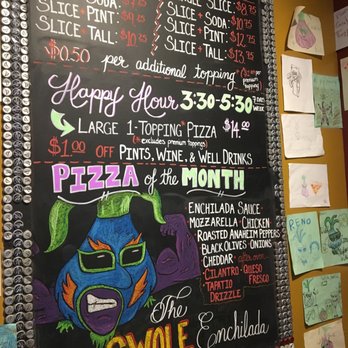 SLICE + SODA: $8.75
SLICE + PINT: $9.75
SLICE + TALL: $10.25
SLICE + SODA: $10.75
SLICE + PINT: $12.75
SLICE + TALL: $13.75
$0.50 per additional topping
Happy Hour 3:30-5:30 7 DAYS WEEK
LARGE 1-TOPPING* PIZZA $14.00
(*excludes premium toppings)
$1.00 OFF PINTS, WINE, & WELL DRINKS
PIZZA of the MONTH
ENCHILADA SAUCE
MOZZARELLA · CHICKEN
ROASTED ANAHEIM PEPPERS
BLACK OLIVES · ONIONS
CHEDDAR · after oven:
· CILANTRO · QUESO FRESCO
· TAPATIO DRIZZLE
The
SWOLE Enchilada
RENO